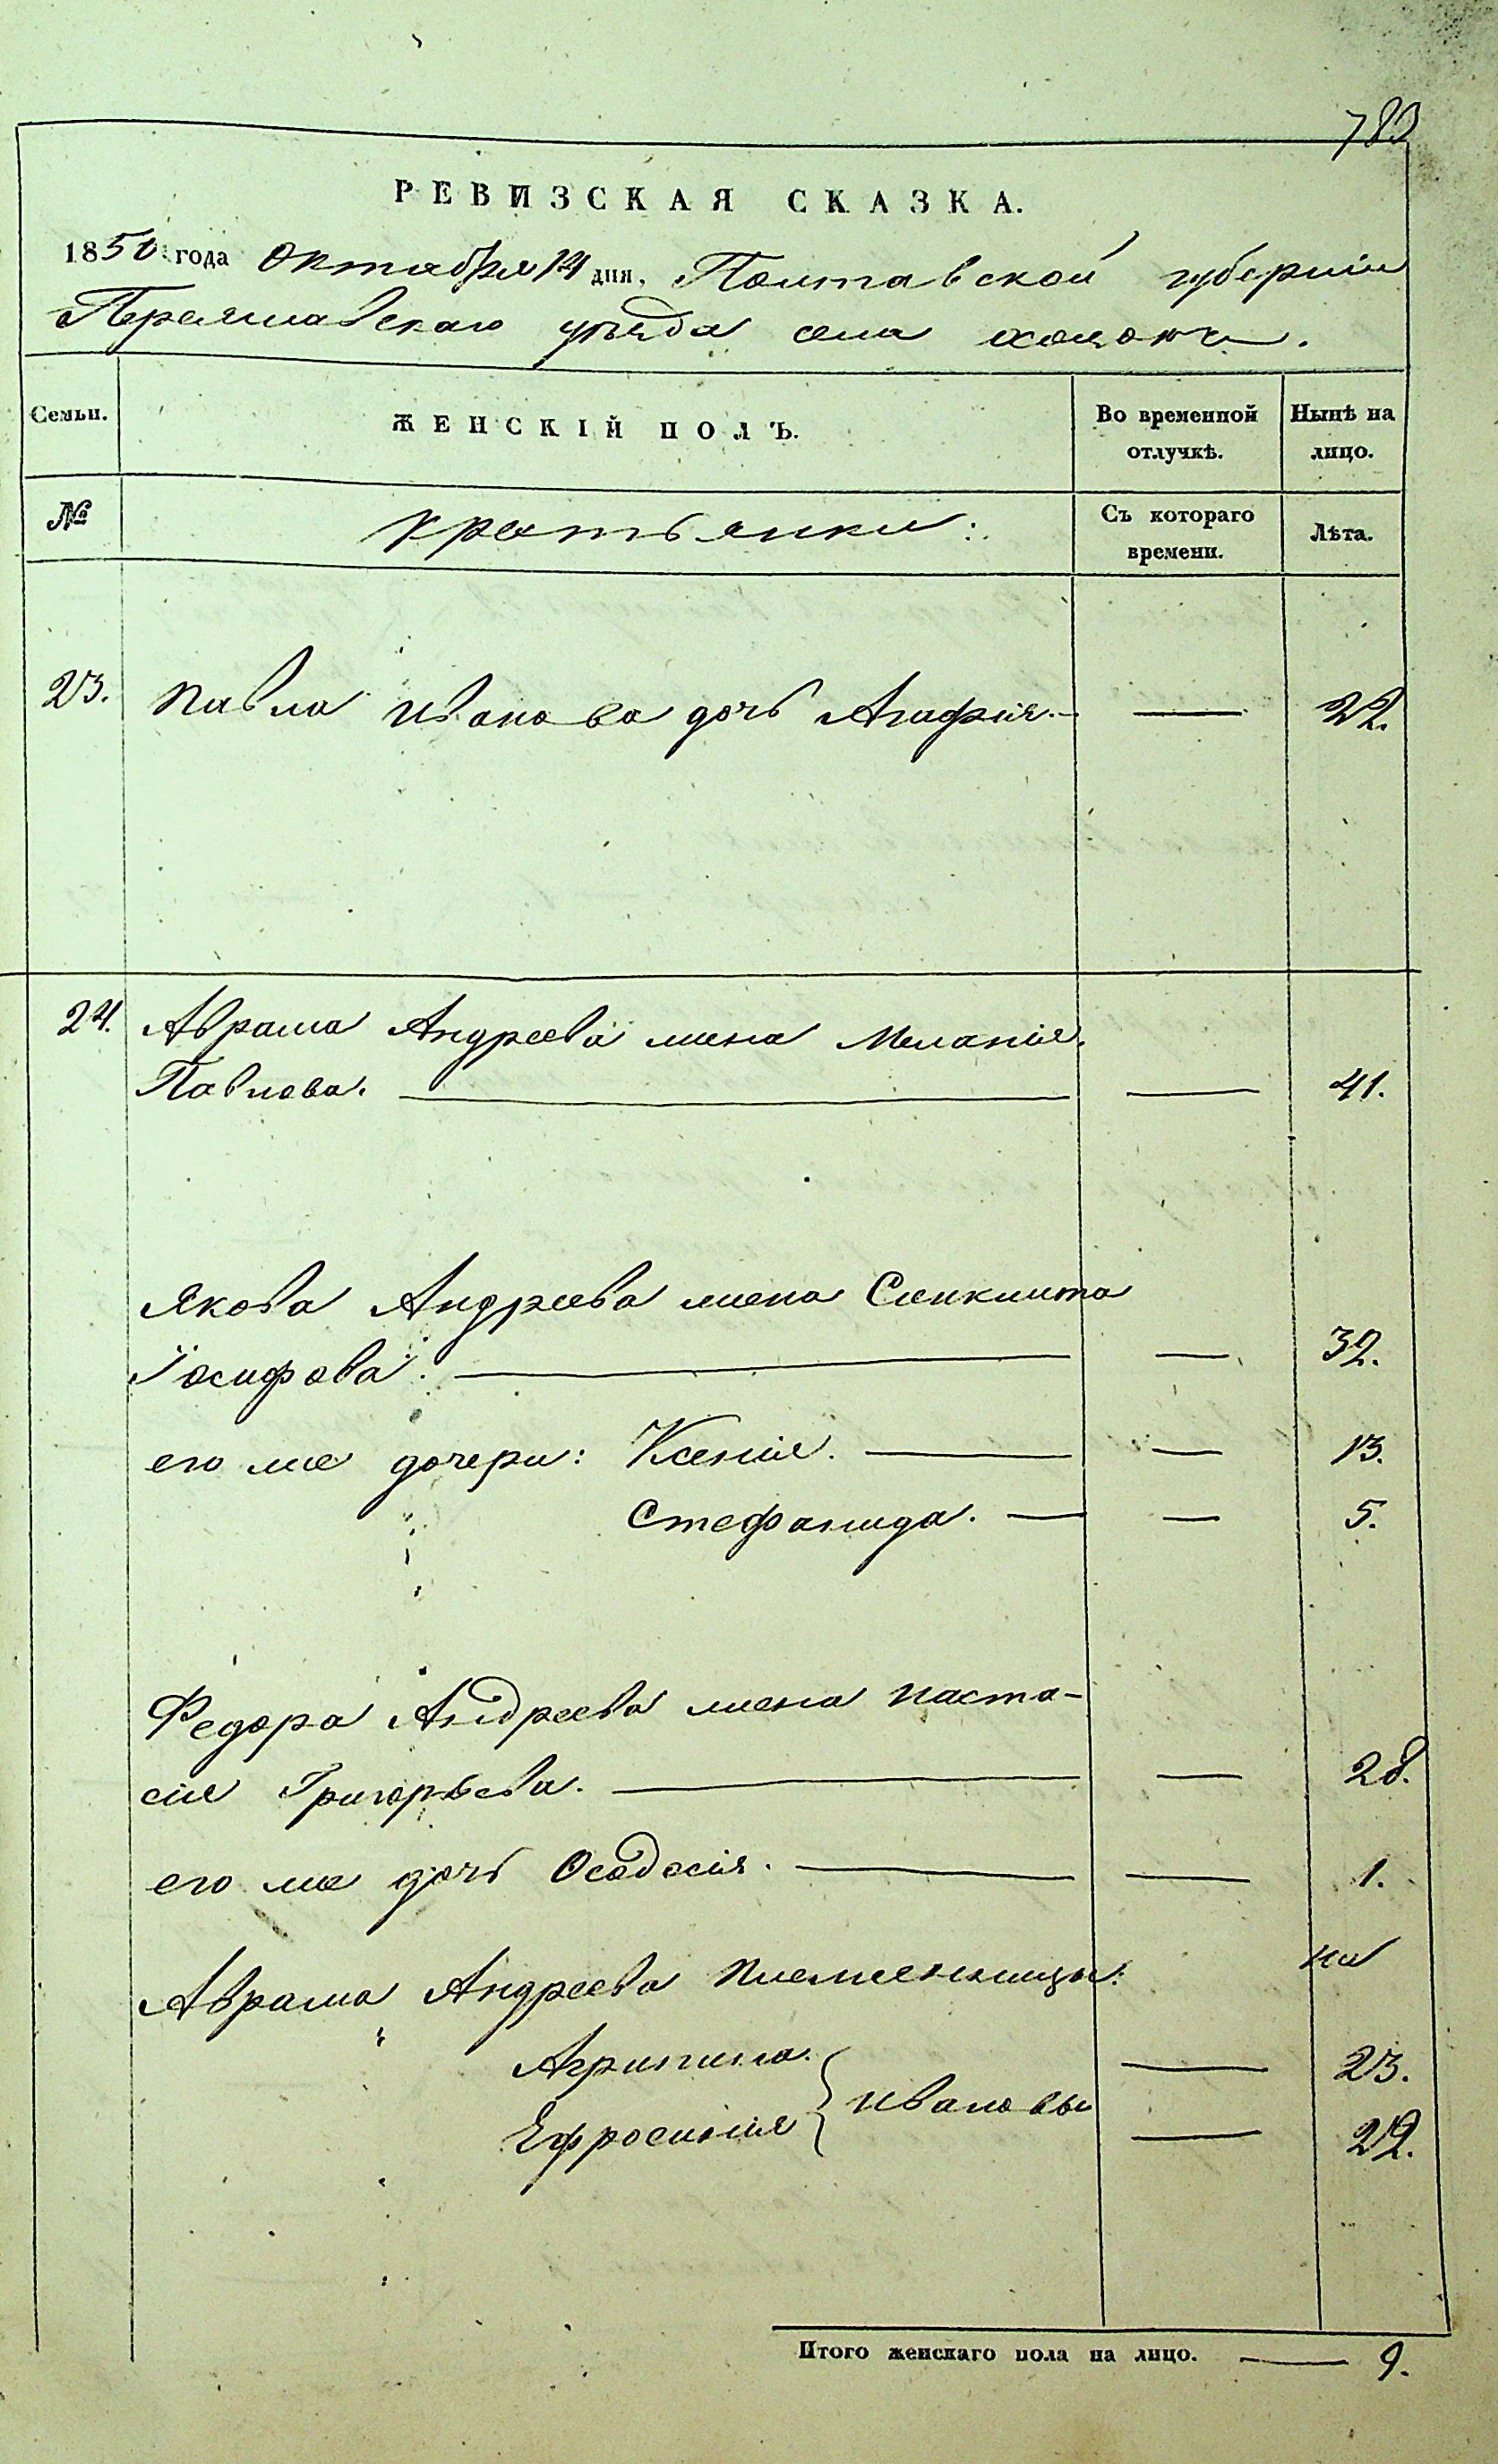 783
РЕВИЗСКАЯ СКАЗКА.
1850 года Октября 14 дня, Полтавской губернии
Переяславскаго уѣзда села
Семьи.
ЖЕНСКІЙ ПОЛЪ.
Во временной отлучкѣ.
Ныпѣ на лицо.
№
Крестьянки:
Съ котораго времени.
Лѣта.
23. Павла Иванова дочь Агафія. — — 22.
24. Аврама Андреева жена Меланія
Павлова. — — 41.
Якова Андреева жена
Іосифова. — — 32.
его же дочери: Ксенія. — — 13.
Стефанида. — — 5.
Федора Андреева жена Наста-
сія Григорьева. — — 28.
его же дочь Феодосія. — — 1.
Аврама Андреева племянницы:
Агрипина. } Ивановы — 23.
Ефросинія — 22.
Итого женскаго пола на лицо. — 9.